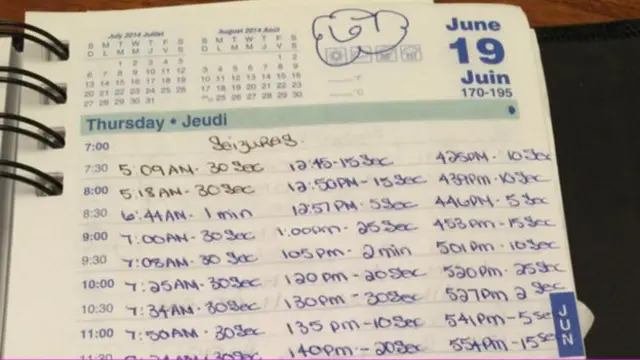 July 2014 Juillet August 2014 Août
S M T W T F S S M T W T F S
D L M M J V S D L M M J V S
1 2 3 4 5 1 2
6 7 8 9 10 11 12 3 4 5 6 7 8 9
13 14 15 16 17 18 19 10 11 12 13 14 15 16
20 21 22 23 24 25 26 17 18 19 20 21 22 23
27 28 29 30 31 24 25 26 27 28 29 30
67
June
19
Juin
170-195
°F
°C
Thursday • Jeudi
7:00 Seizures.
7:30 5:09AM - 30 Sec 12:45 - 15 Sec 425PM - 10 Sec
8:00 5:18AM - 30 Sec 12:50PM - 15 Sec 439PM - 10 Sec
8:30 6:44AM - 1 min 12:57PM - 5 Sec 446PM - 5 Sec
9:00 7:00AM - 30 Sec 1:00PM - 25 Sec 453PM - 15 Sec
9:30 7:03AM - 30 Sec 105PM - 2 min 501PM - 10 Sec
10:00 7:25AM - 30 Sec 120PM - 20 Sec 520PM - 25 Sec
10:30 7:34AM - 30 Sec 130PM - 30 Sec 527PM 2 Sec
11:00 7:50AM - 30 Sec 135PM - 10 Sec 541PM - 5 Sec
11:30 30 Sec 140PM - 20 Sec 554PM - 15 Sec
JUN